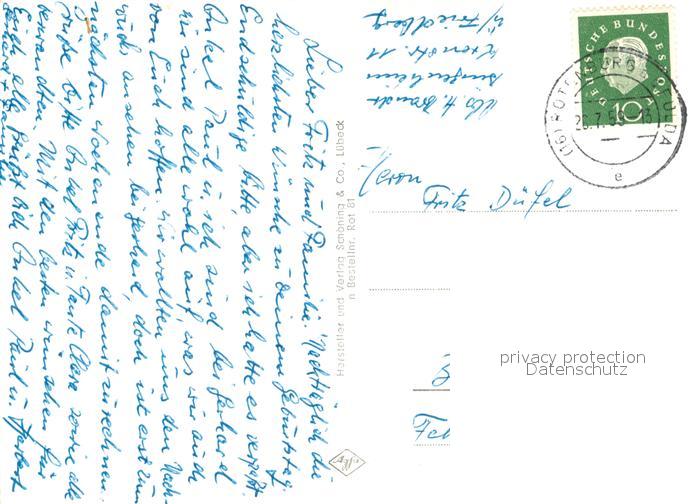 Lieber Fritz und Familie. Nachträglich die
herzlichsten Wünsche zu Deinem Geburtstag.
Entschuldige bitte, aber ich hatte es verpaßt.
Onkel Paul u. ich sind bei Gerhard
zu sind alle wohl auf, was wir auch
von Euch hoffen. Wir wollten uns den Nach-
wuchs ansehen bei Gerhard, doch ist erst zum
nächsten Wochenende damit zu rechnen.
Grüße bitte Onkel Fritz u. Tante Clara sowie alle
Verwandten. Mit den besten Wünschen für
Euch alle grüßt Dich Onkel Paul u.
Hersteller und Verlag Schöning & Co., Lübeck
n Bestellnr. Rot 81
Agfa
Abs. H.
Str. 11
b/ Friedberg
DEUTSCHE BUNDESPOST
10
(16) ROTENBURG FULDA
26.7.59.-13
e
Herrn
Fritz Düfel
privacy protection
Datenschutz